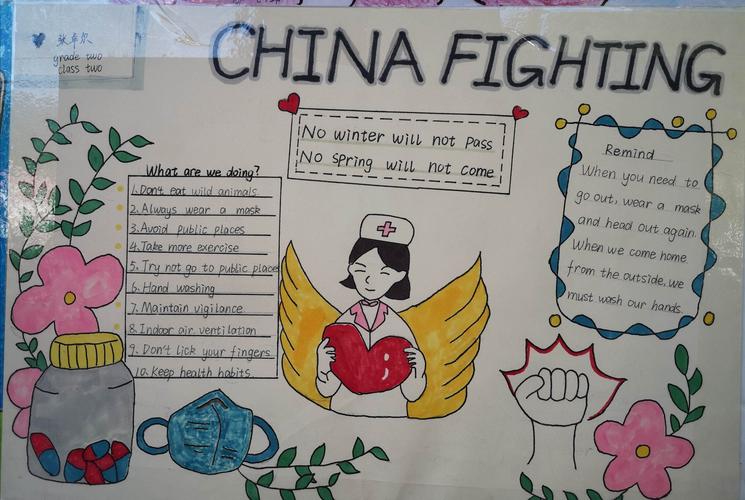 张卓尔
grade two
class two
CHINA FIGHTING
No winter will not pass
No spring will not come
What are we doing?
1. Don't eat wild animals
2. Always wear a mask
3. Avoid public places
4. Take more exercise
5. Try not go to public place
6. Hand washing
7. Maintain vigilance
8. Indoor air ventilation
9. Don't lick your fingers
10. Keep health habits
Remind
When you need to
go out, wear a mask
and head out again.
When we come home
from the outside, we
must wash our hands.